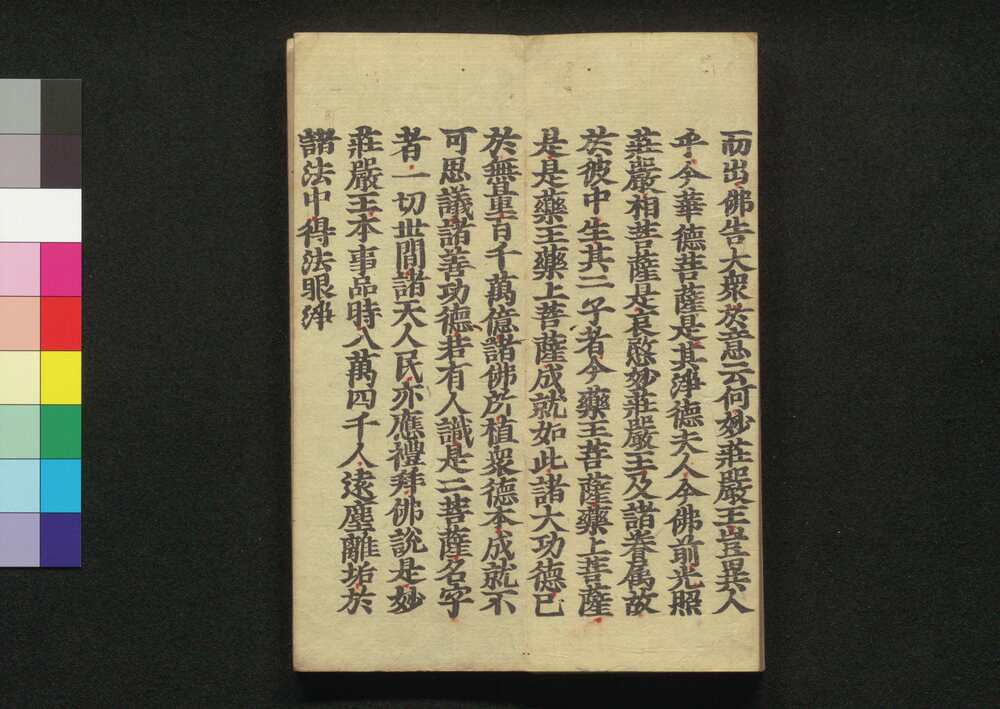 而出佛告大衆於意云何妙莊嚴王豈異人
乎今華德菩薩是其淨德夫人今佛前光照
莊嚴相菩薩是哀愍妙莊嚴王及諸眷屬故
於彼中生其二子者今藥王菩薩藥上菩薩
是是藥王藥上菩薩成就如此諸大功德已
於無量百千萬億諸佛所植衆德本成就不
可思議諸善功德若有人識是二菩薩名字
者一切世間諸天人民亦應禮拜佛說是妙
莊嚴王本事品時八萬四千人遠塵離垢於
諸法中得法眼淨